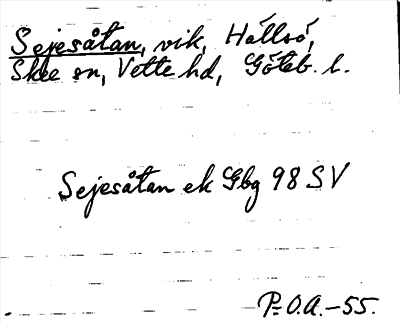 Sejesåtan, vik, Hällsö,
Skee sn, Vette hd, Göteb. l.
Sejesåtan ek Gbg 98 SV
P.O.A.-55.